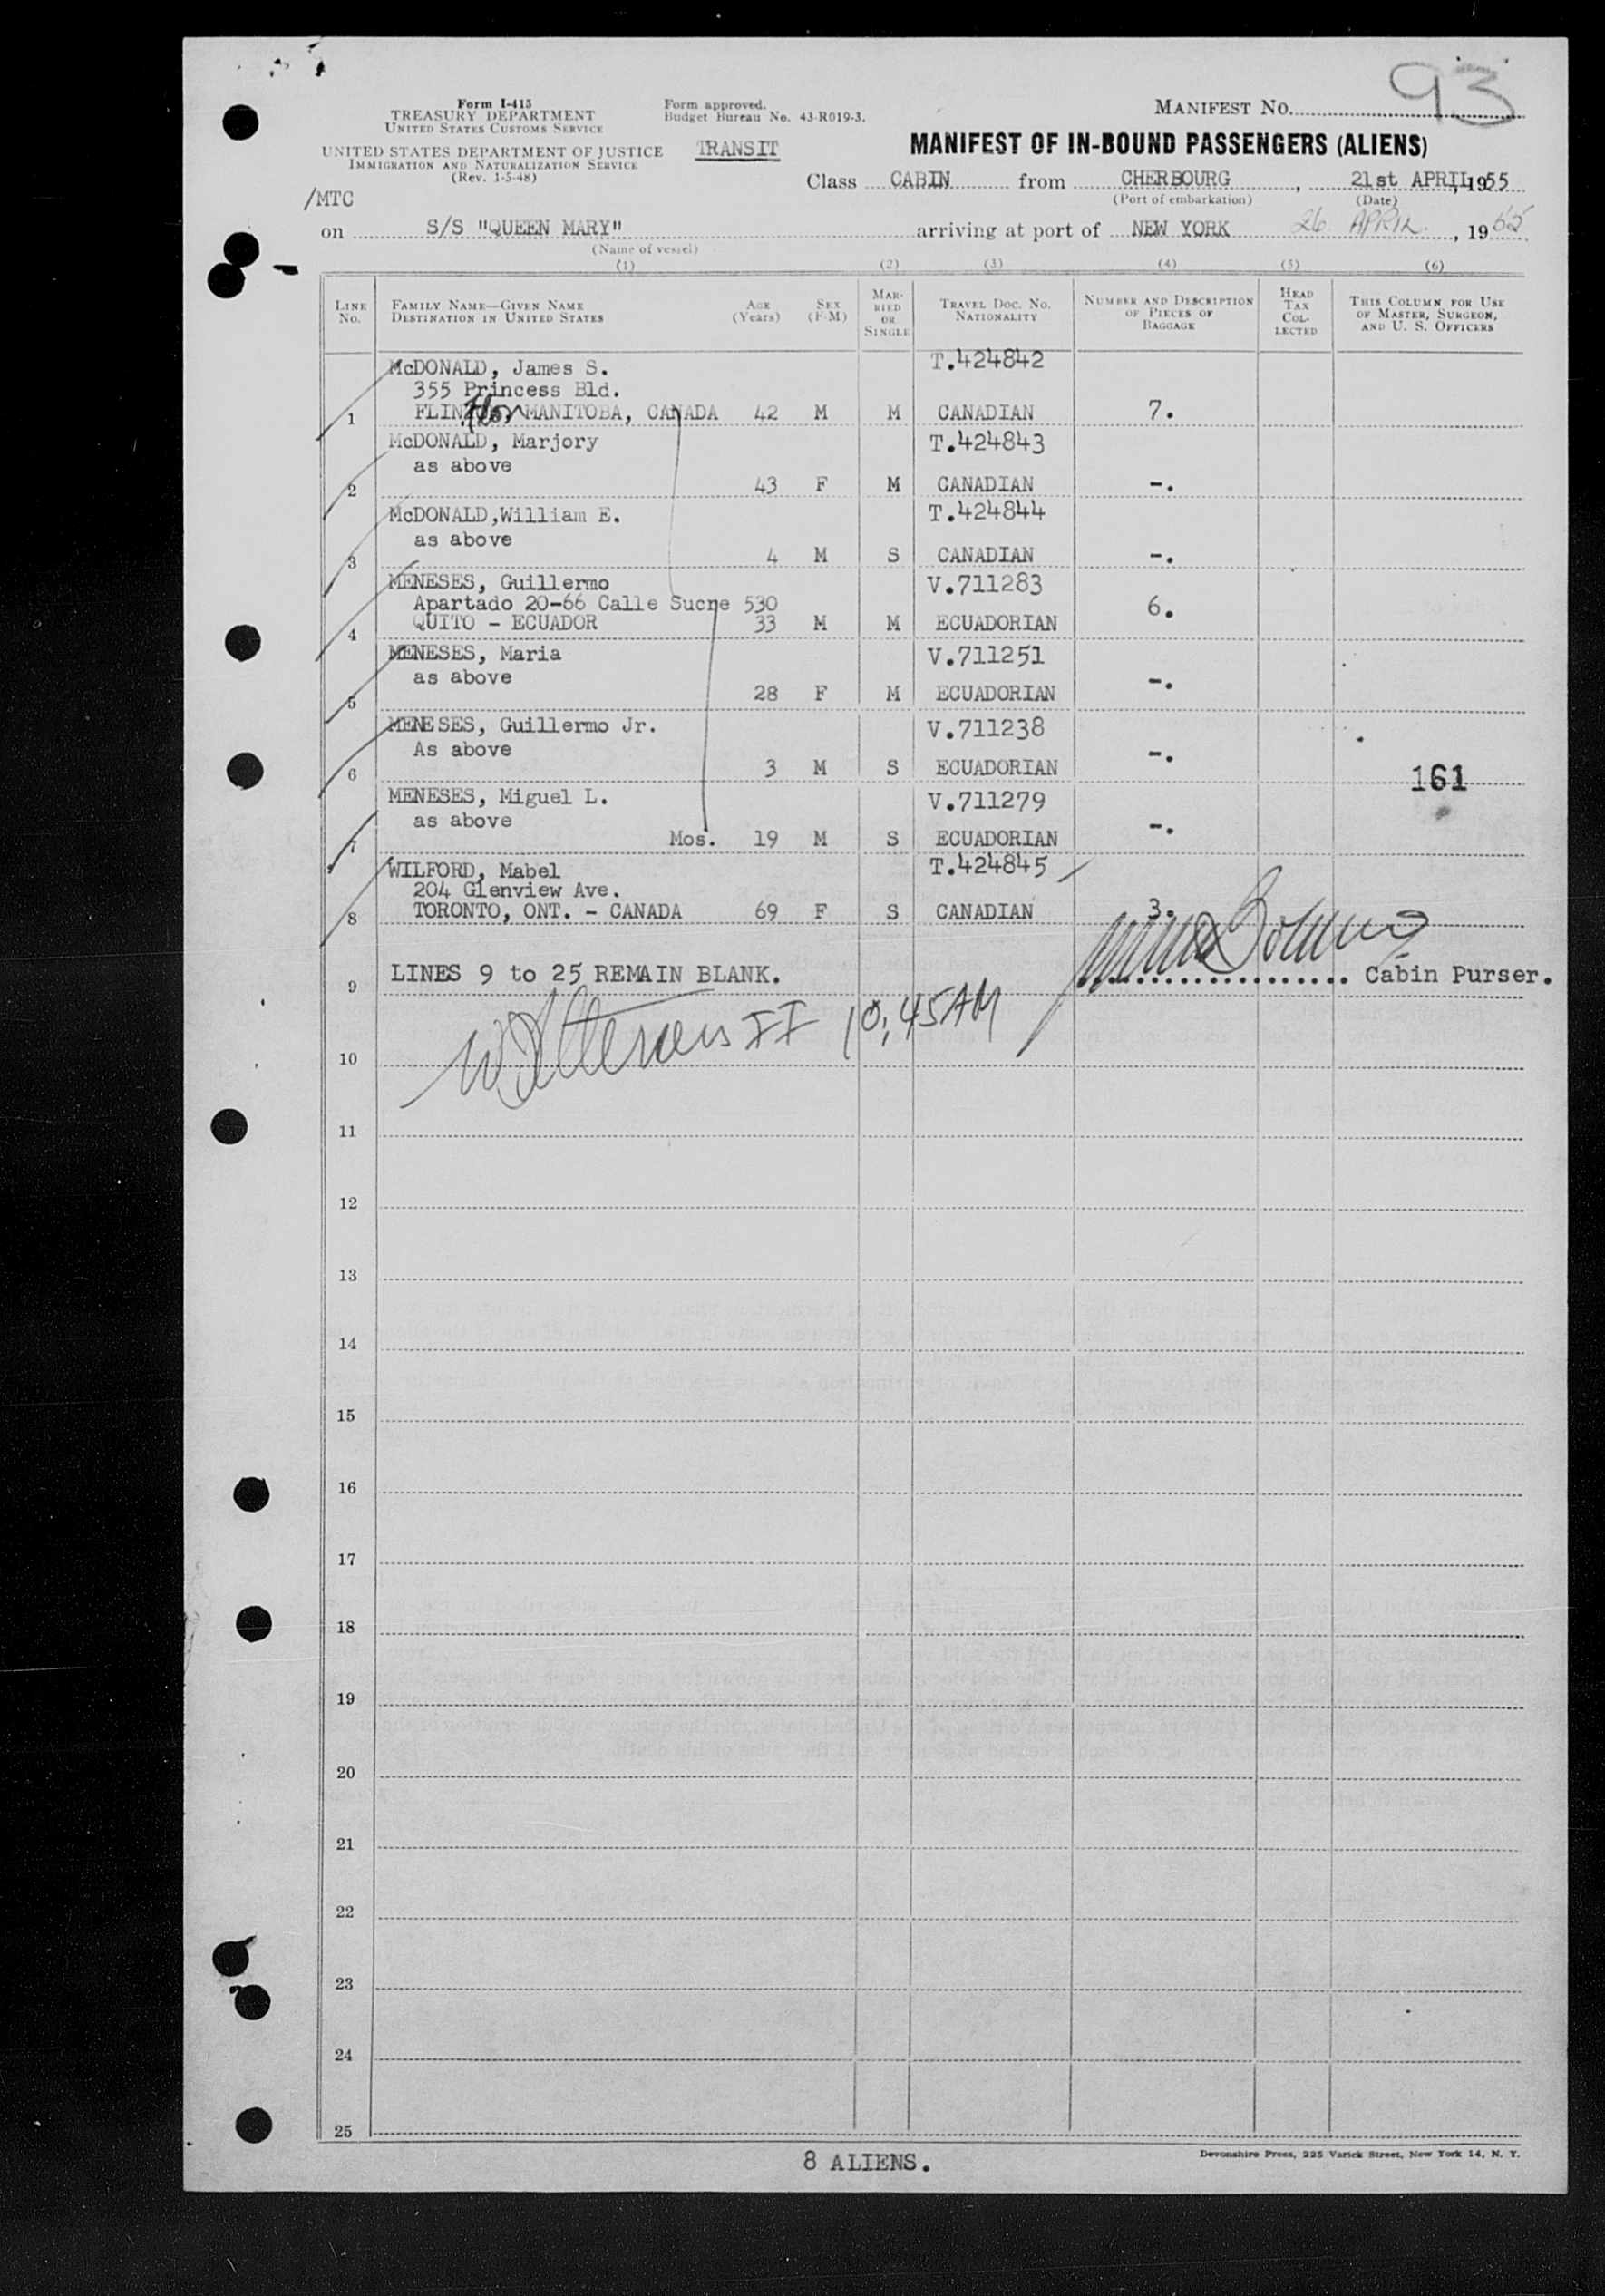 93
Form I-415
TREASURY DEPARTMENT
UNITED STATES CUSTOMS SERVICE
UNITED STATES DEPARTMENT OF JUSTICE
IMMIGRATION AND NATURALIZATION SERVICE
(Rev. 1-5-48)
/MTC
Form approved.
Budget Bureau No. 43-R019-3.
TRANSIT
MANIFEST NO.
MANIFEST OF IN-BOUND PASSENGERS (ALIENS)
Class CABIN from CHERBOURG, 21st APRIL, 1955
(Port of embarkation) (Date)
on S/S "QUEEN MARY" arriving at port of NEW YORK 26 APRIL, 1955
(Name of vessel)
(1) (2) (3) (4) (5) (6)
LINE NO. FAMILY NAME—GIVEN NAME DESTINATION IN UNITED STATES AGE (Years) SEX (F-M) MARRIED OR SINGLE TRAVEL DOC. NO. NATIONALITY NUMBER AND DESCRIPTION OF PIECES OF BAGGAGE HEAD TAX COLLECTED THIS COLUMN FOR USE OF MASTER, SURGEON, AND U. S. OFFICERS
McDONALD, James S. T.424842
355 Princess Bld.
1 FLIN flon MANITOBA, CANADA 42 M M CANADIAN 7.
McDONALD, Marjory T.424843
as above
2 43 F M CANADIAN -.
McDONALD,William E. T.424844
as above
3 4 M S CANADIAN -.
MENESES, Guillermo V.711283
Apartado 20-66 Calle Sucre 530 6.
4 QUITO - ECUADOR 33 M M ECUADORIAN
MENESES, Maria V.711251
as above
5 28 F M ECUADORIAN -.
MENESES, Guillermo Jr. V.711238
As above
6 3 M S ECUADORIAN -.
161
MENESES, Miguel L. V.711279
as above
7 Mos. 19 M S ECUADORIAN -.
WILFORD, Mabel T.424845
204 Glenview Ave.
8 TORONTO, ONT. - CANADA 69 F S CANADIAN 3.
9 LINES 9 to 25 REMAIN BLANK. Cabin Purser.
II 10:45AM
10
11
12
13
14
15
16
17
18
19
20
21
22
23
24
25
8 ALIENS.
Devonshire Press, 225 Varick Street, New York 14, N. Y.